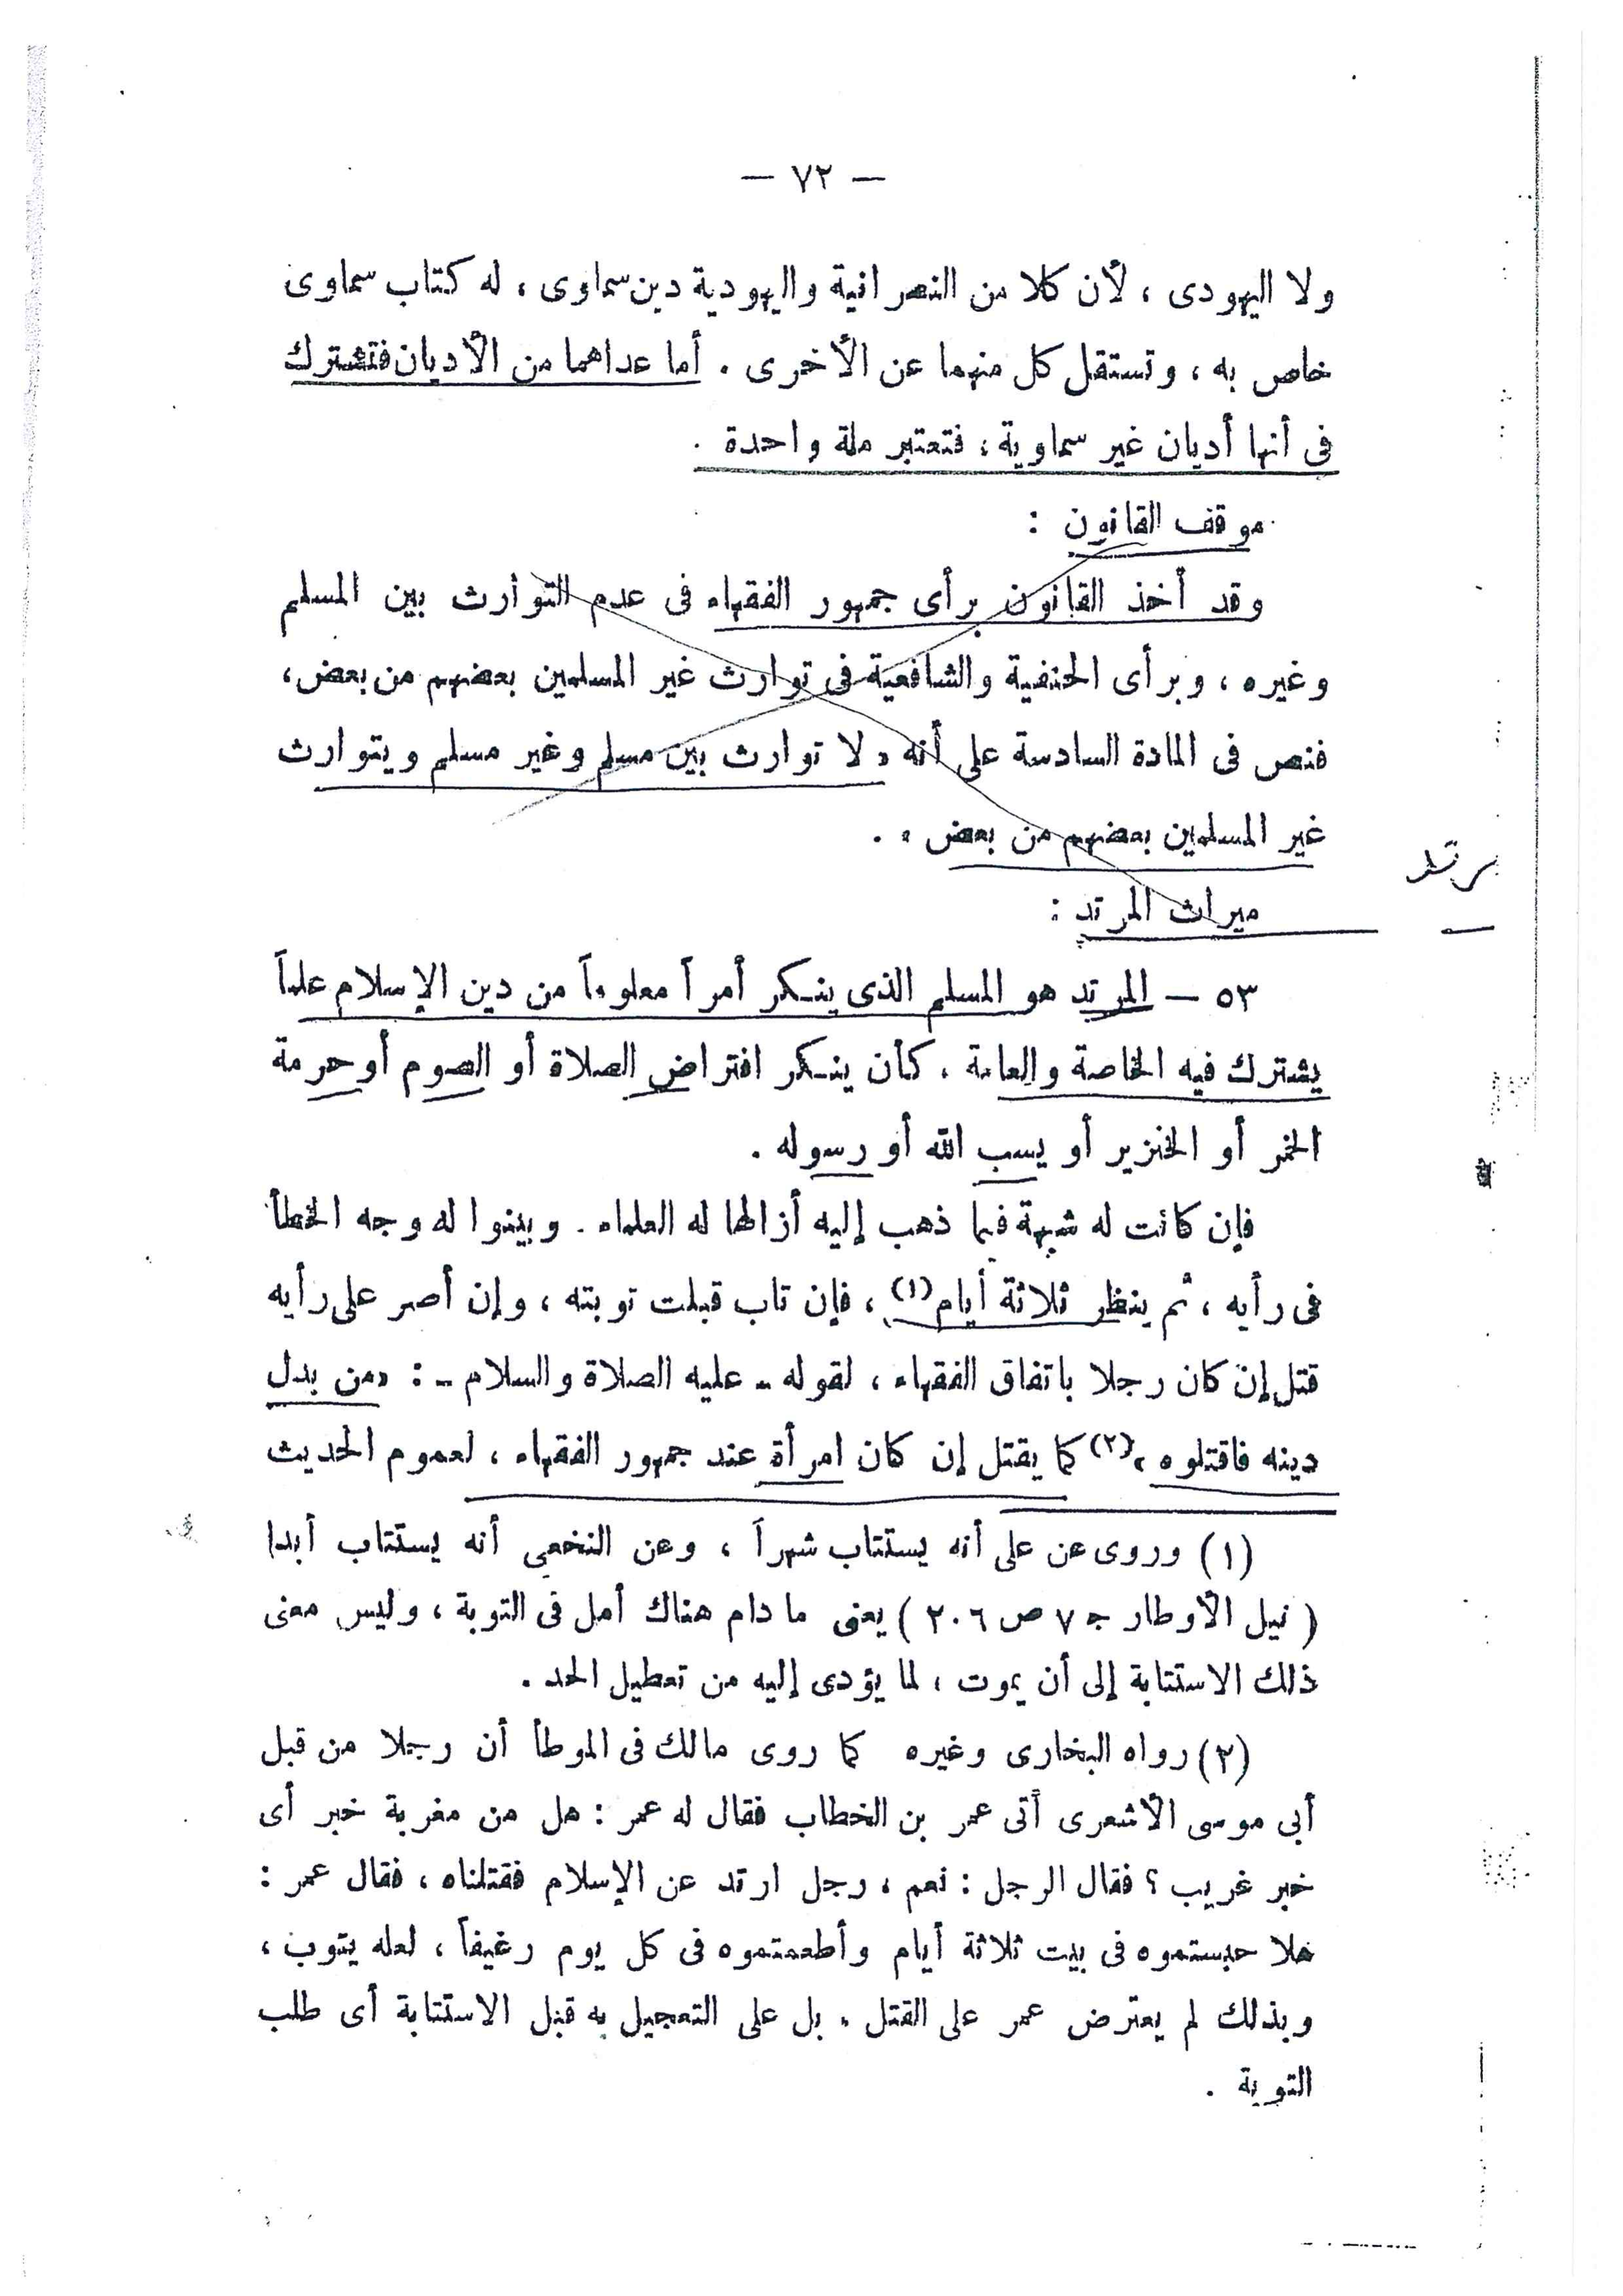 — ٧٢ —
ولا اليهودى ، لأن كلا من النصرانية واليهودية دين سماوى ، له كتاب سماوى
خاص به ، وتستقل كل منهما عن الأخرى . أما عداهما من الأديان فتشترك
فى أنها أديان غير سماوية ، فتعتبر ملة واحدة .
موقف القانون :
وقد أخذ القانون برأى جمهور الفقهاء فى عدم التوارث بين المسلم
وغيره ، وبرأى الحنفية والشافعية فى توارث غير المسلمين بعضهم من بعض ،
فنص فى المادة السادسة على أنه « لا توارث بين مسلم وغير مسلم ويتوارث
غير المسلمين بعضهم من بعض » .
يرتد
ميراث المرتد :
٥٣ — المرتد هو المسلم الذى ينكر أمراً معلوماً من دين الإسلام علماً
يشترك فيه الخاصة والعامة ، كأن ينكر افتراض الصلاة أو الصوم أو حرمة
الخمر أو الخنزير أو يسب الله أو رسوله .
فإن كانت له شبهة فيما ذهب إليه أزالها له العلماء . وبينوا له وجه الخطأ
فى رأيه ، ثم ينظر ثلاثة أيام (١) ، فإن تاب قبلت توبته ، وإن أصر على رأيه
قتل إن كان رجلا باتفاق الفقهاء ، لقوله - عليه الصلاة والسلام - : «من بدل
دينه فاقتلوه »(٢) كما يقتل إن كان امرأة عند جمهور الفقهاء ، لعموم الحديث
(١) وروى عن على أنه يستتاب شهراً ، وعن النخعى أنه يستتاب أبدا
( نيل الأوطار جـ ٧ ص ٢٠٦ ) يعنى ما دام هناك أمل فى التوبة ، وليس معنى
ذلك الاستتابة إلى أن يموت ، لما يؤدى إليه من تعطيل الحد .
(٢) رواه البخارى وغيره كما روى مالك فى الموطأ أن رجلا من قبل
أبى موسى الأشعرى أتى عمر بن الخطاب فقال له عمر : هل من مغربة خبر أى
خبر غريب ؟ فقال الرجل : نعم ، رجل ارتد عن الإسلام فقتلناه ، فقال عمر :
هلا حبستموه فى بيت ثلاثة أيام وأطعمتموه فى كل يوم رغيفاً ، لعله يتوب ،
وبذلك لم يعترض عمر على القتل . بل على التعجيل به قبل الاستتابة أى طلب
التوبة .